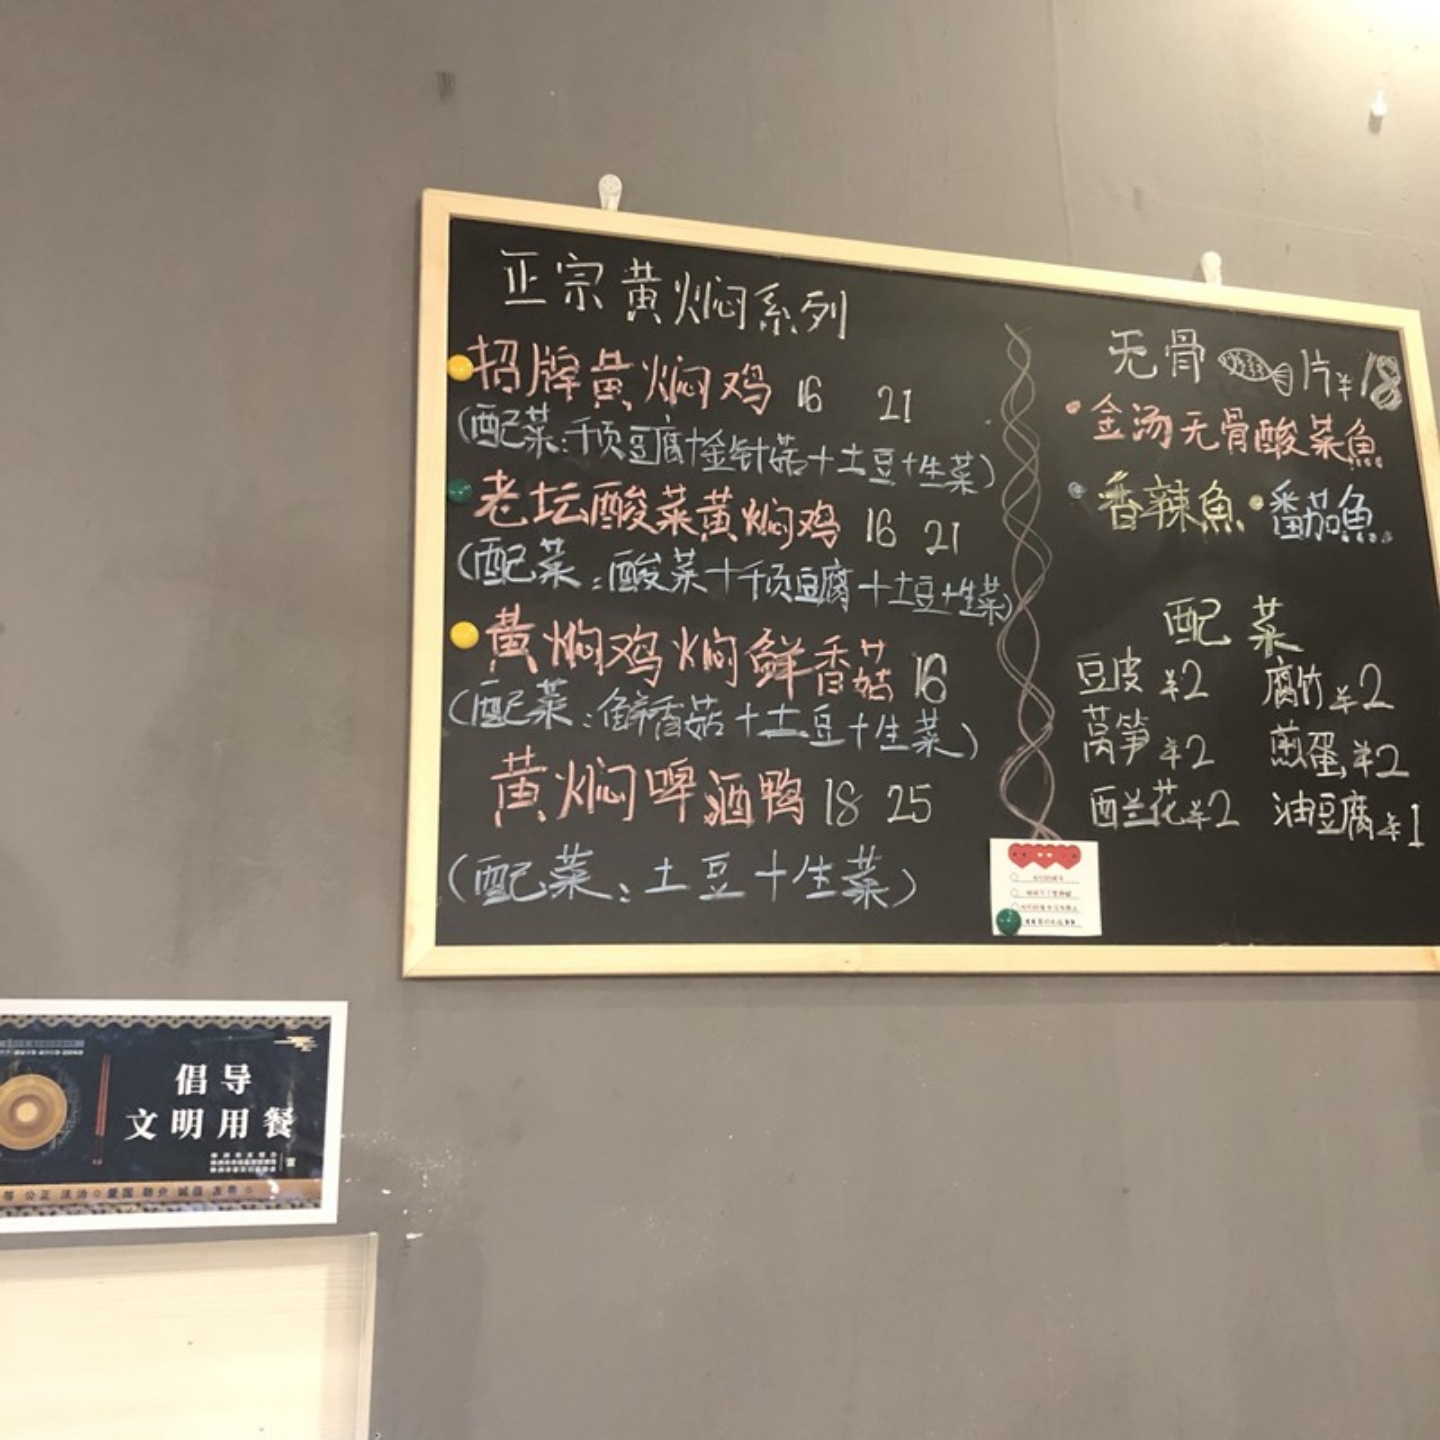 正宗黄焖系列
招牌黄焖鸡 16 21
(配菜:千页豆腐+金针菇+土豆+生菜)
老坛酸菜黄焖鸡 16 21
(配菜:酸菜+千页豆腐+土豆+生菜)
黄焖鸡焖鲜香菇 16
(配菜:鲜香菇+土豆+生菜)
黄焖啤酒鸭 18 25
(配菜:土豆+生菜)
无骨 1片¥18
金汤无骨酸菜魚
香辣魚 番茄鱼
配菜
豆皮 ¥2 腐竹 ¥2
莴笋 ¥2 煎蛋 ¥2
西兰花 ¥2 油豆腐 ¥1
倡导
文明用餐
等 公正 法治 爱国 敬业 诚信 友善